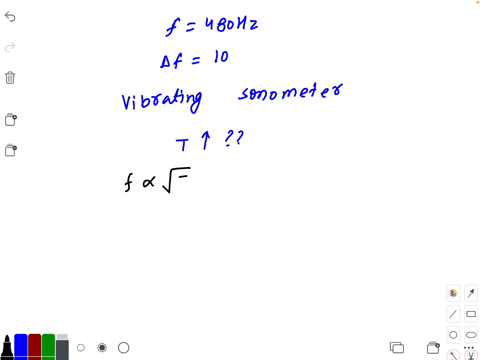 f = 480Hz
Δf = 10
Vibrating sonometer
T ↑ ??
f ∝ √